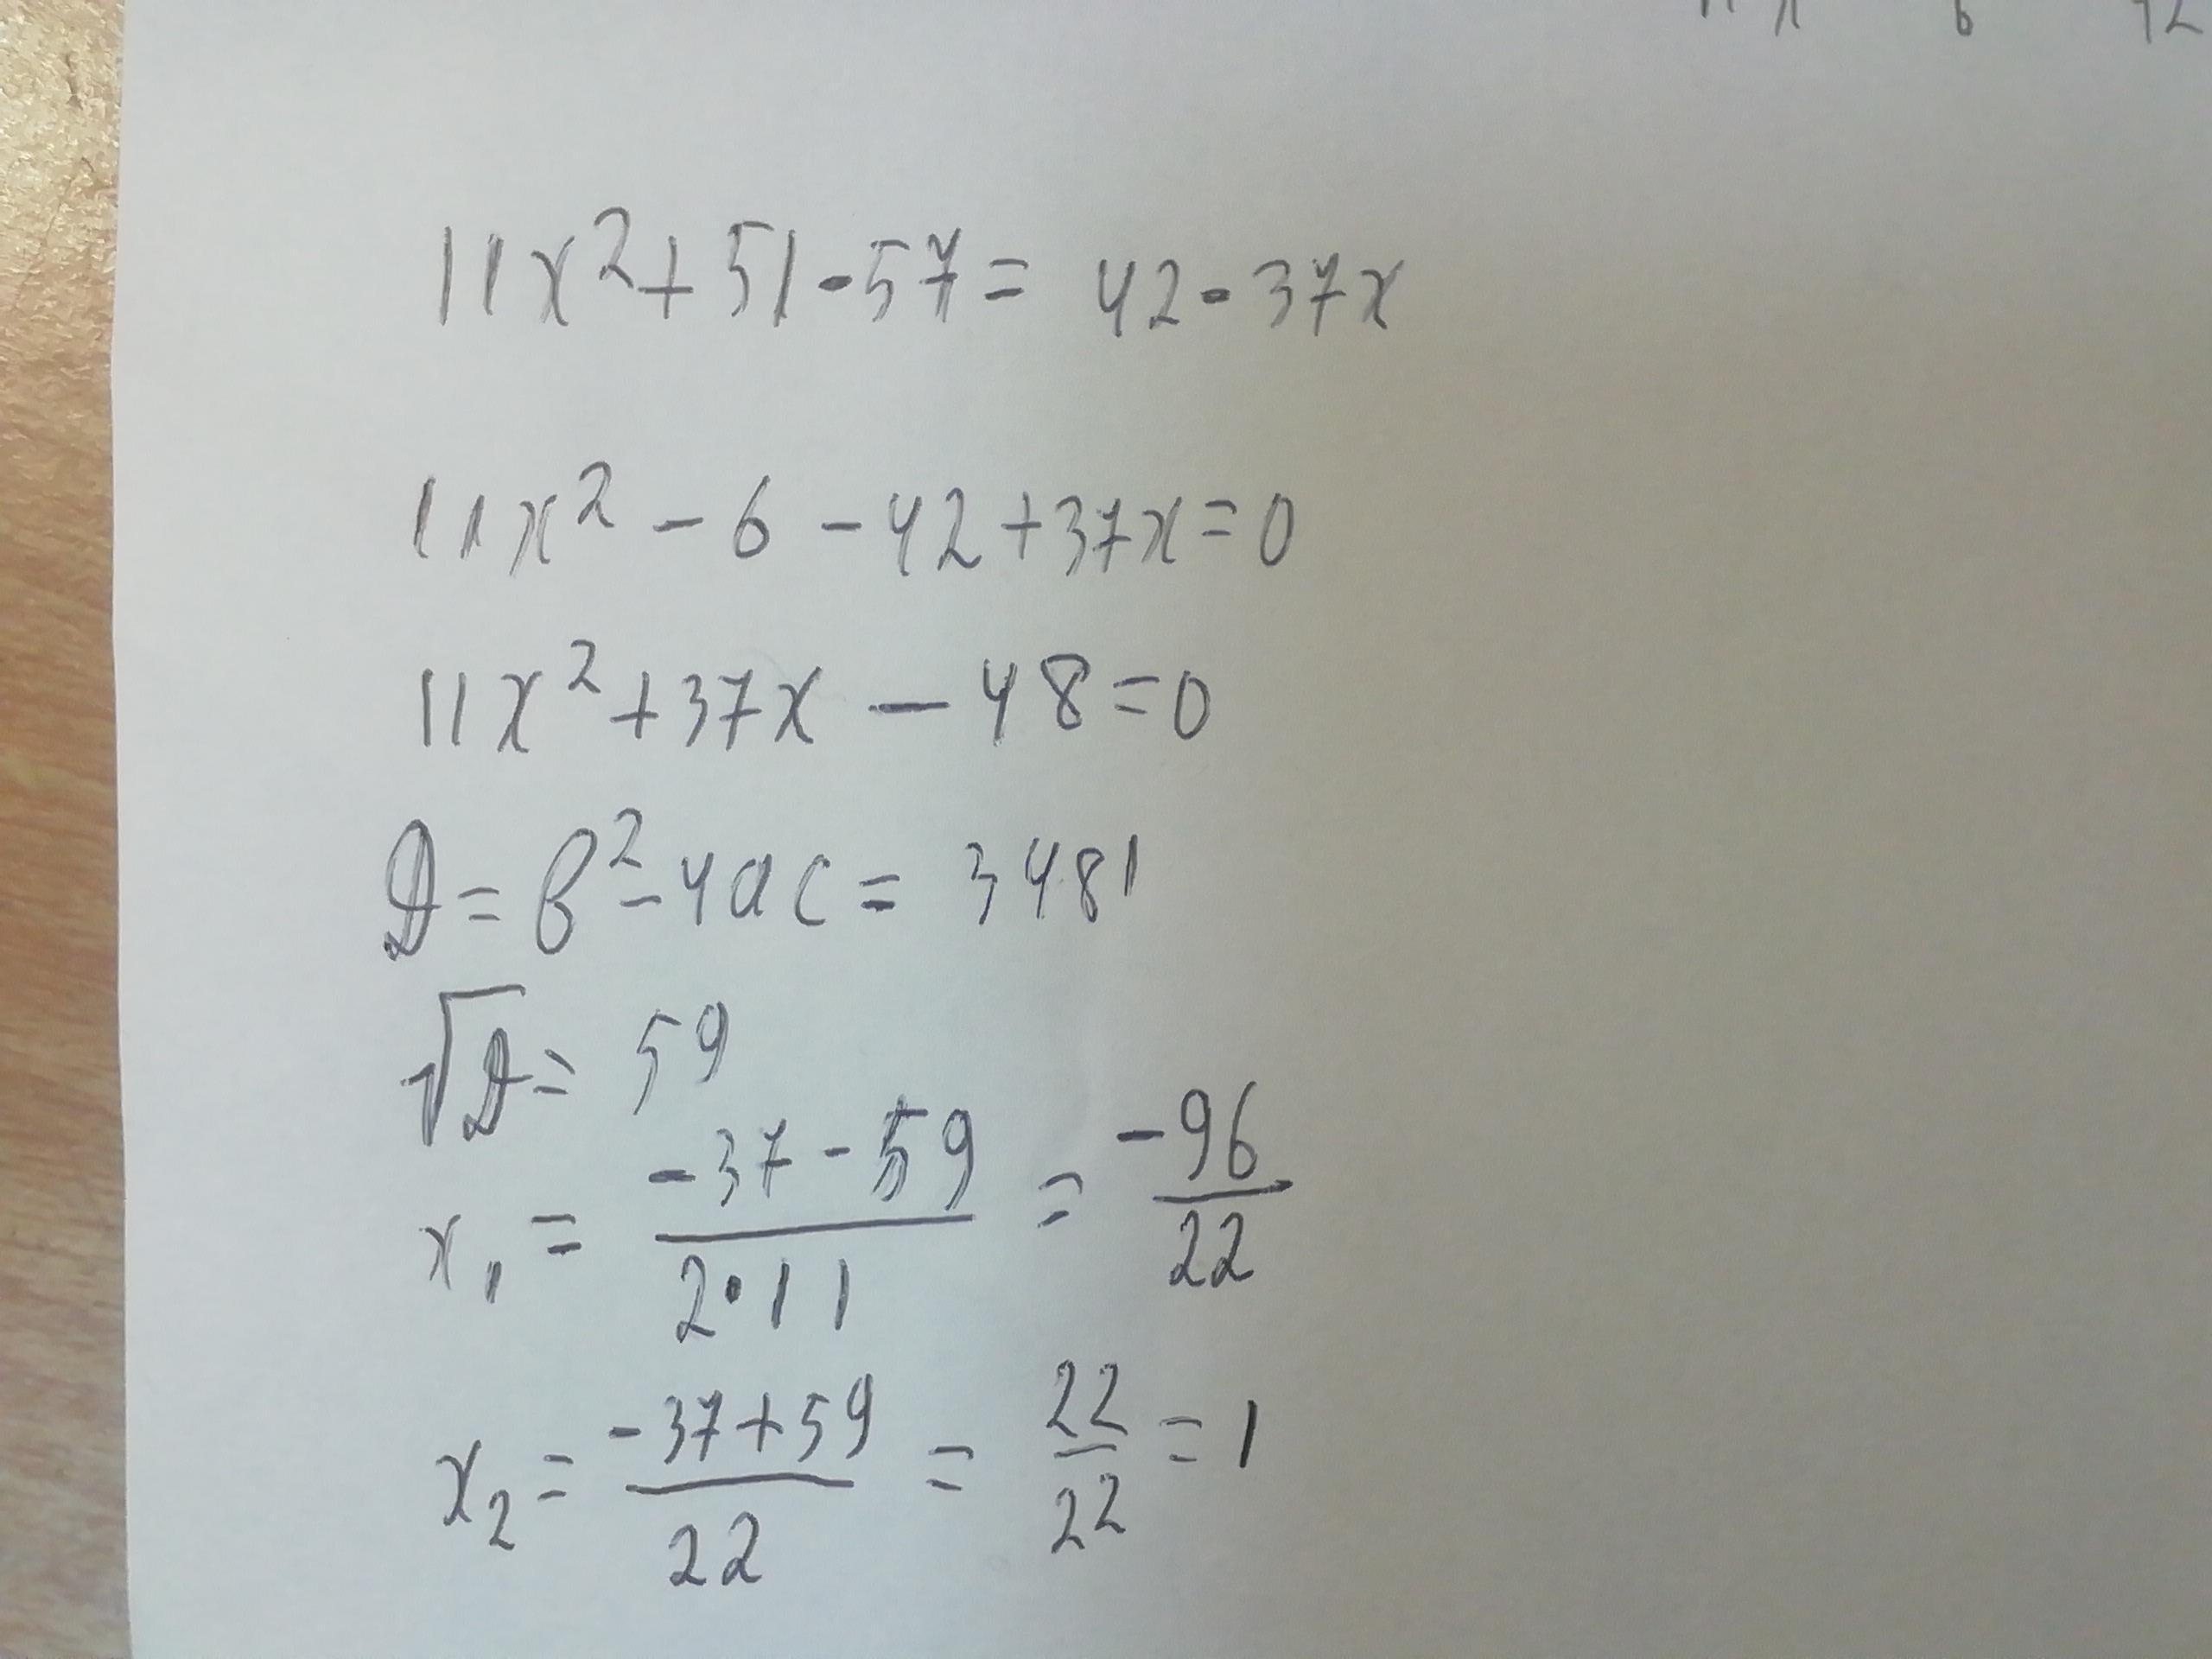 11x² + 51 - 57 = 42 - 37x
11x² - 6 - 42 + 37x = 0
11x² + 37x - 48 = 0
D = b² - 4ac = 3481
√D = 59
x₁ = (-37 - 59)/(2·11) = -96/22
x₂ = (-37 + 59)/22 = 22/22 = 1